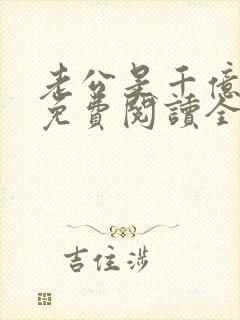 老公是千億
免費閱讀全
吉住涉